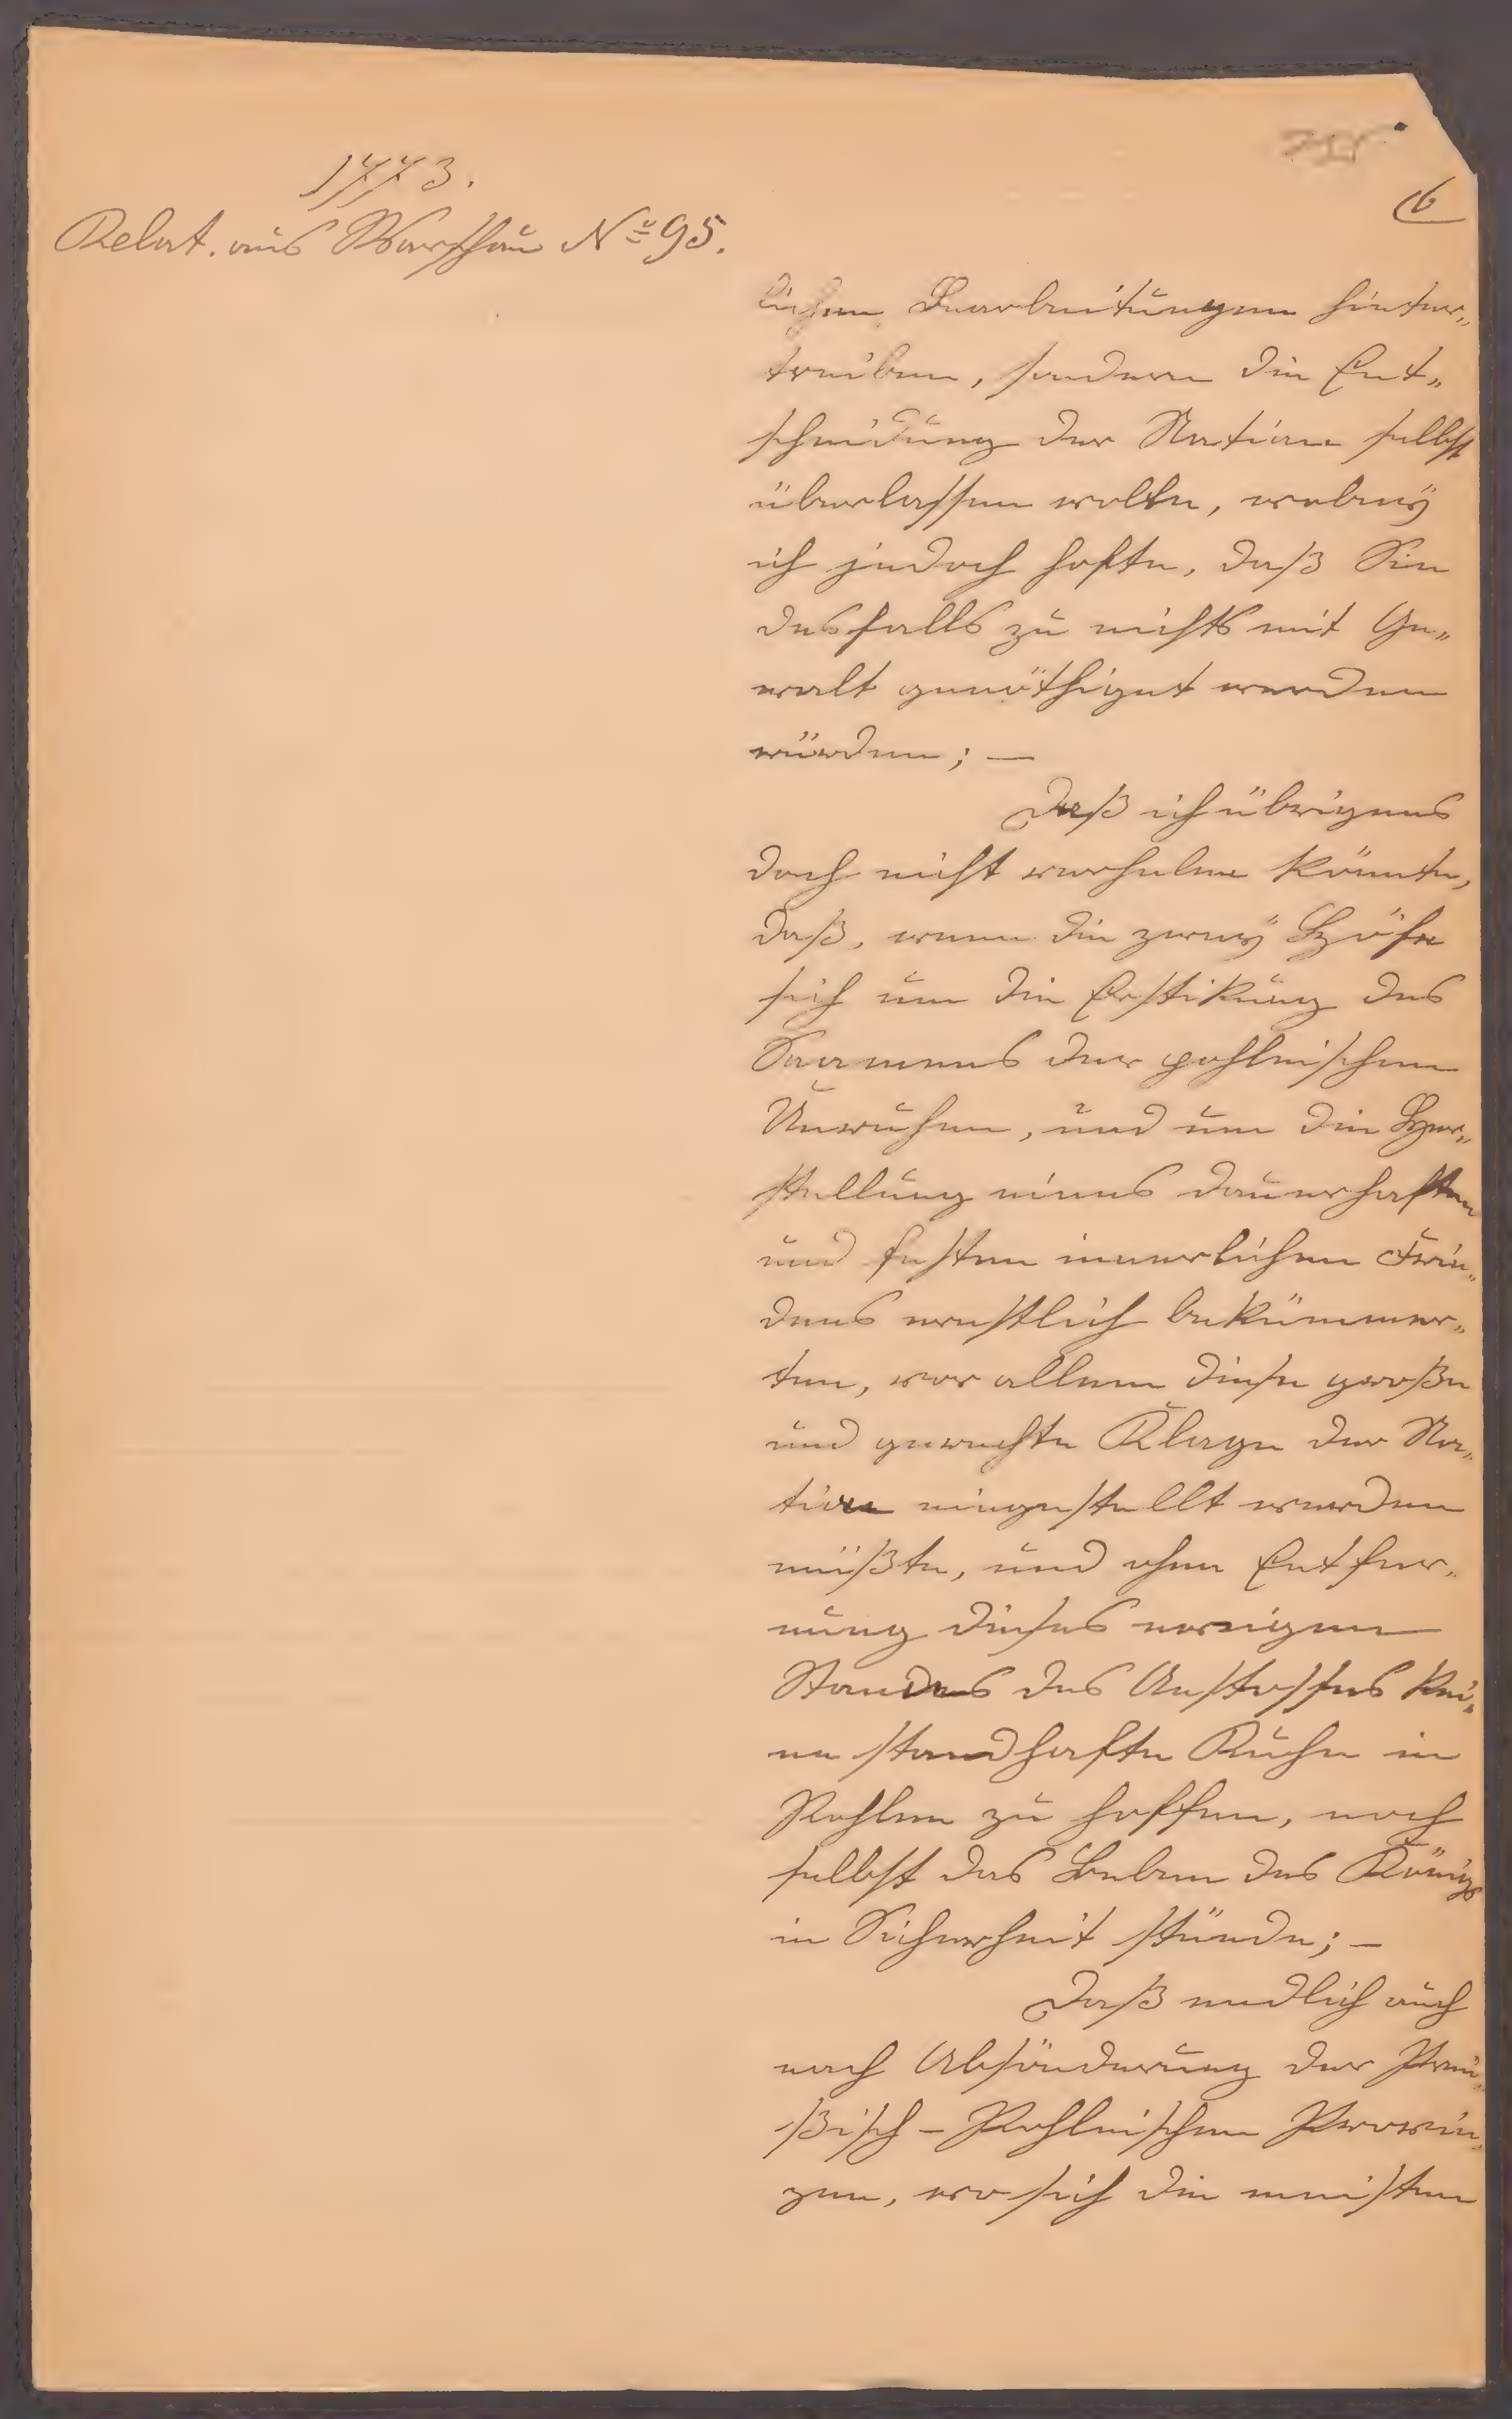 1773.
Relat. aus Warschau No 95.
6
lichen Bearbeitungen hinter„
treiben, sondern die Ent„
scheidung der Nation selbst
überlassen wolle, wobey
ich jedoch hofte, daß Sie
desfalls zu nichts mit Ge„
walt genöthiget werden
würden; —
Daß ich übrigens
doch nicht verhelen könnte,
daß, wenn die zwey Höfe
sich um die Erstikung des
Saamens der pohlnischen
Unruhen, und um die Her„
stellung eines dauerhaften
und festen innerlichen Frie„
dens ernstlich bekümmer„
ten, vor allem diese große
und gerechte Klage der Na„
tion eingestellt werden
müßte, und ohne Entfer„
nung dieses ewigen
Standes des Anstosses kei„
ne standhafte Ruhe in
Pohlen zu hoffen, noch
selbst das Leben des Königs
in Sicherheit stünde; —
Daß endlich auch
nach Absönderung der Preu„
ßisch - Pohlnischen Provin„
zen, wo sich die meisten